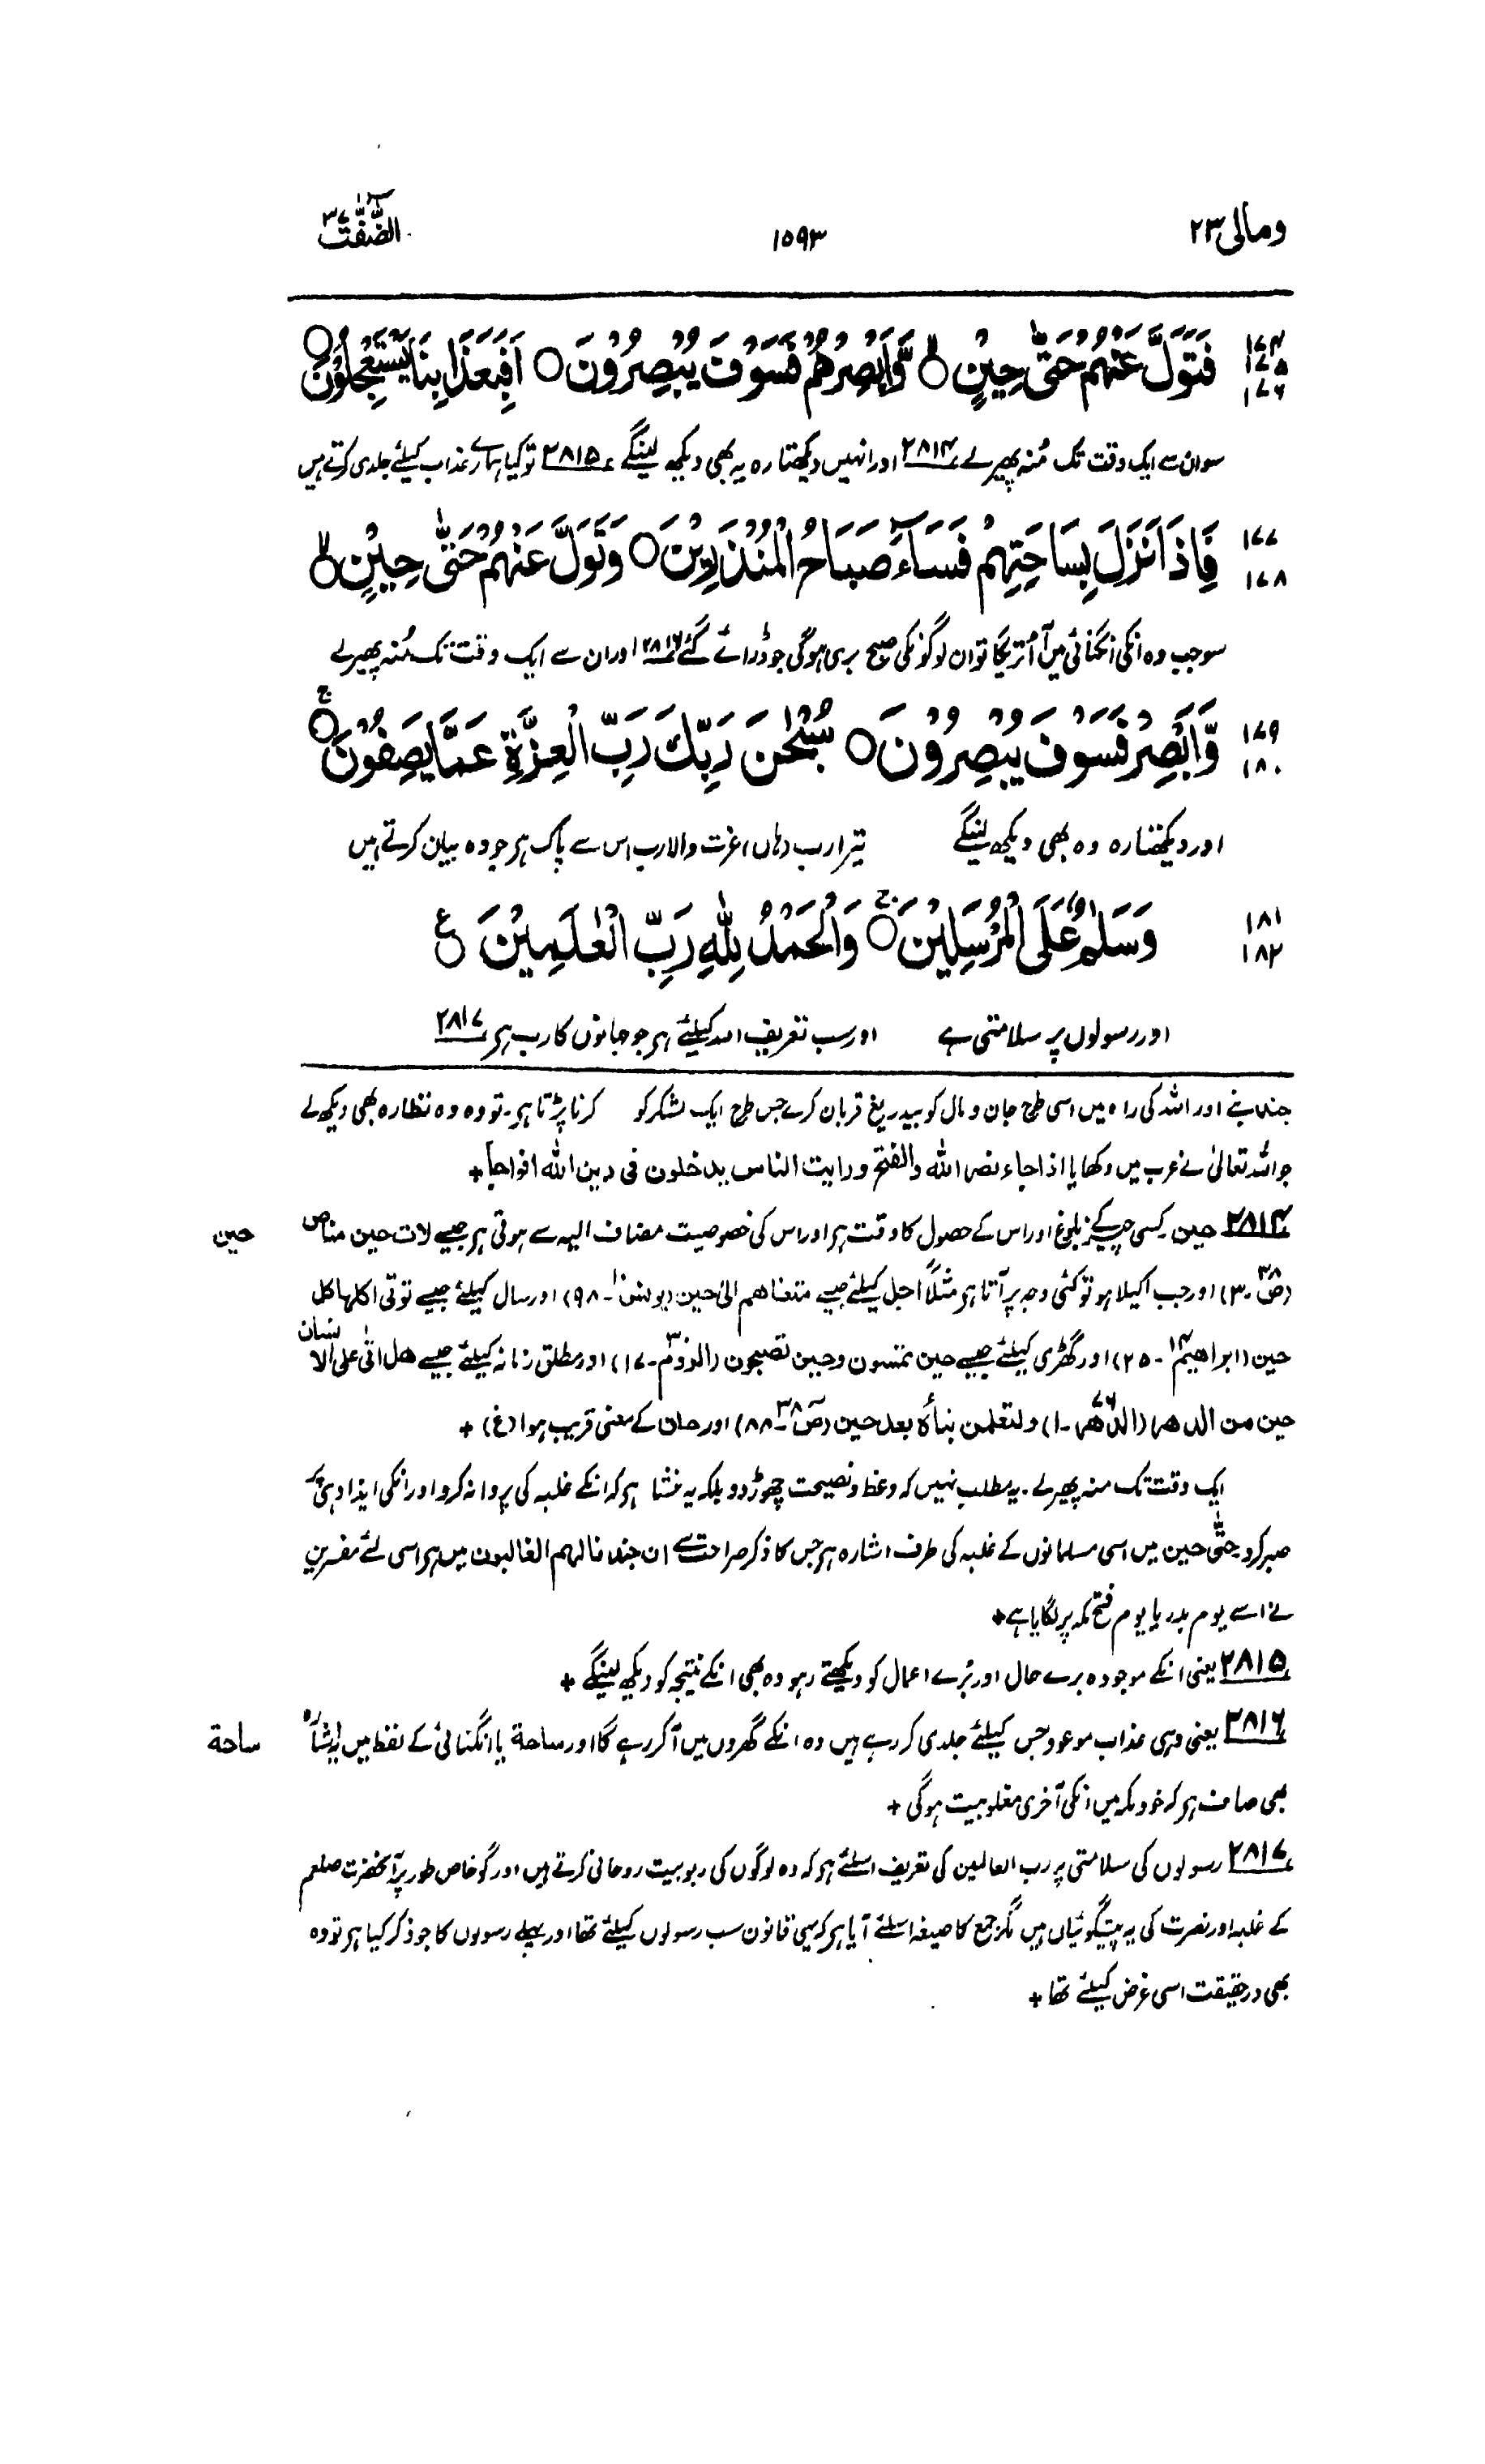 ومالی ۲۳
۱۵۹۳
الصّٰٓفّٰت ۳۷
۱۷۴
۱۷۵
۱۷۶
فَتَوَلَّ عَنْهُمْ حَتّٰى حِيْنٍ ۙ وَّاَبْصِرْهُمْ فَسَوْفَ يُبْصِرُوْنَ ○ اَفَبِعَذَابِنَا يَسْتَعْجِلُوْنَ ○
سو ان سے ایک وقت تک مُنہ پھیر لے ۲۸۱۴ اور انہیں دیکھتا رہ یہ بھی دیکھ لینگے ۲۸۱۵ تو کیا ہمارے عذاب کیلئے جلدی کرتے ہیں
۱۷۷
۱۷۸
فَاِذَا نَزَلَ بِسَاحَتِهِمْ فَسَآءَ صَبَاحُ الْمُنْذَرِيْنَ ○ وَتَوَلَّ عَنْهُمْ حَتّٰى حِيْنٍ ۙ
سو جب وہ انکی انگنائی میں آ اُتریگا تو ان لوگونکی صبح بری ہوگی جو ڈرائے گئے ۲۸۱۶ اور ان سے ایک وقت تک مُنہ پھیر لے
۱۷۹
۱۸۰
وَّاَبْصِرْ فَسَوْفَ يُبْصِرُوْنَ ○ سُبْحٰنَ رَبِّكَ رَبِّ الْعِزَّةِ عَمَّا يَصِفُوْنَ ○ ج
اور دیکھتا رہ وہ بھی دیکھ لینگے تیرا رب (ہاں) عزت والا رب اس سے پاک ہر جو وہ بیان کرتے ہیں
۱۸۱
۱۸۲
وَسَلٰمٌ عَلَى الْمُرْسَلِيْنَ ○ ج وَالْحَمْدُ لِلّٰهِ رَبِّ الْعٰلَمِيْنَ ○ ع
اور رسولوں پر سلامتی ہے اور سب تعریف اللہ کیلئے ہر جو جہانوں کا رب ہر ۲۸۱۷
جند بنے اور اللہ کی راہ میں اسی طرح جان و مال کو بیدریغ قربان کرے جس طرح ایک لشکر کو کرنا پڑتا ہر۔ تو وہ وہ نظارہ بھی دیکھ لے
جو اللہ تعالیٰ نے عرب میں دکھایا اذا جاء نصر اللہ والفتح ورایت الناس یدخلون فی دین اللہ افواجاً +
۲۸۱۴ حین۔ کسی چیز کے بلوغ اور اس کے حصول کا وقت ہر اور اس کی خصوصیت مضاف الیہ سے ہوتی ہر جیسے لات حین مناص
حین
(صٓ ۳۸۔۳) اور جب اکیلا ہو تو کئی وجہ پر آتا ہر مثلاً اجل کیلئے جیسے متعناھم الیٰ حین (یونس ۱۰۔۹۸) اور سال کیلئے جیسے تؤتی اکلھا کل
حین (ابراھیم ۱۴۔۲۵) اور گھڑی کیلئے جیسے حین تمسون وحین تصبحون (الروم ۳۰۔۱۷) اور مطلق زمانہ کیلئے جیسے ھل اتیٰ علی الانسان
حین من الدھر (الدھر ۷۶۔۱) ولتعلمن نبأہ بعد حین (صٓ ۳۸۔۸۸) اور حان کے معنی قریب ہوا (غ) +
ایک وقت تک منہ پھیر لے۔ یہ مطلب نہیں کہ وعظ و نصیحت چھوڑ دو بلکہ یہ منشا ہر کہ انکے غلبہ کی پروا نہ کرو اور انکی ایذا دہی پر
صبر کرو حتّٰی حین میں اسی مسلمانوں کے غلبہ کی طرف اشارہ ہر جس کا ذکر صراحت سے ان جندنا لھم الغالبون میں ہر اسی لئے مفسرین
نے اسے یوم بدر یا یوم فتح مکہ پر لگایا ہے +
۲۸۱۵ یعنی انکے موجودہ برے حال اور بُرے اعمال کو دیکھتے رہو وہ بھی انکے نتیجہ کو دیکھ لینگے +
۲۸۱۶ یعنی وہی عذاب موعود جس کیلئے جلدی کر رہے ہیں وہ انکے گھروں میں آ کر رہے گا اور ساحة یا انگنائی کے لفظ میں یہ اشارہ
ساحة
بھی صاف ہر کہ خود مکہ میں انکی آخری مغلوبیت ہوگی +
۲۸۱۷ رسولوں کی سلامتی پر رب العالمین کی تعریف اسلئے ہر کہ وہ لوگوں کی ربوبیت روحانی کرتے ہیں اور گو خاص طور پر آنحضرت صلعم
کے غلبہ اور نصرت کی یہ پیشگوئیاں ہیں مگر جمع کا صیغہ اسلئے آیا ہر کہ یہی قانون سب رسولوں کیلئے تھا اور پہلے رسولوں کا جو ذکر کیا ہر تو وہ
بھی درحقیقت اسی غرض کیلئے تھا +